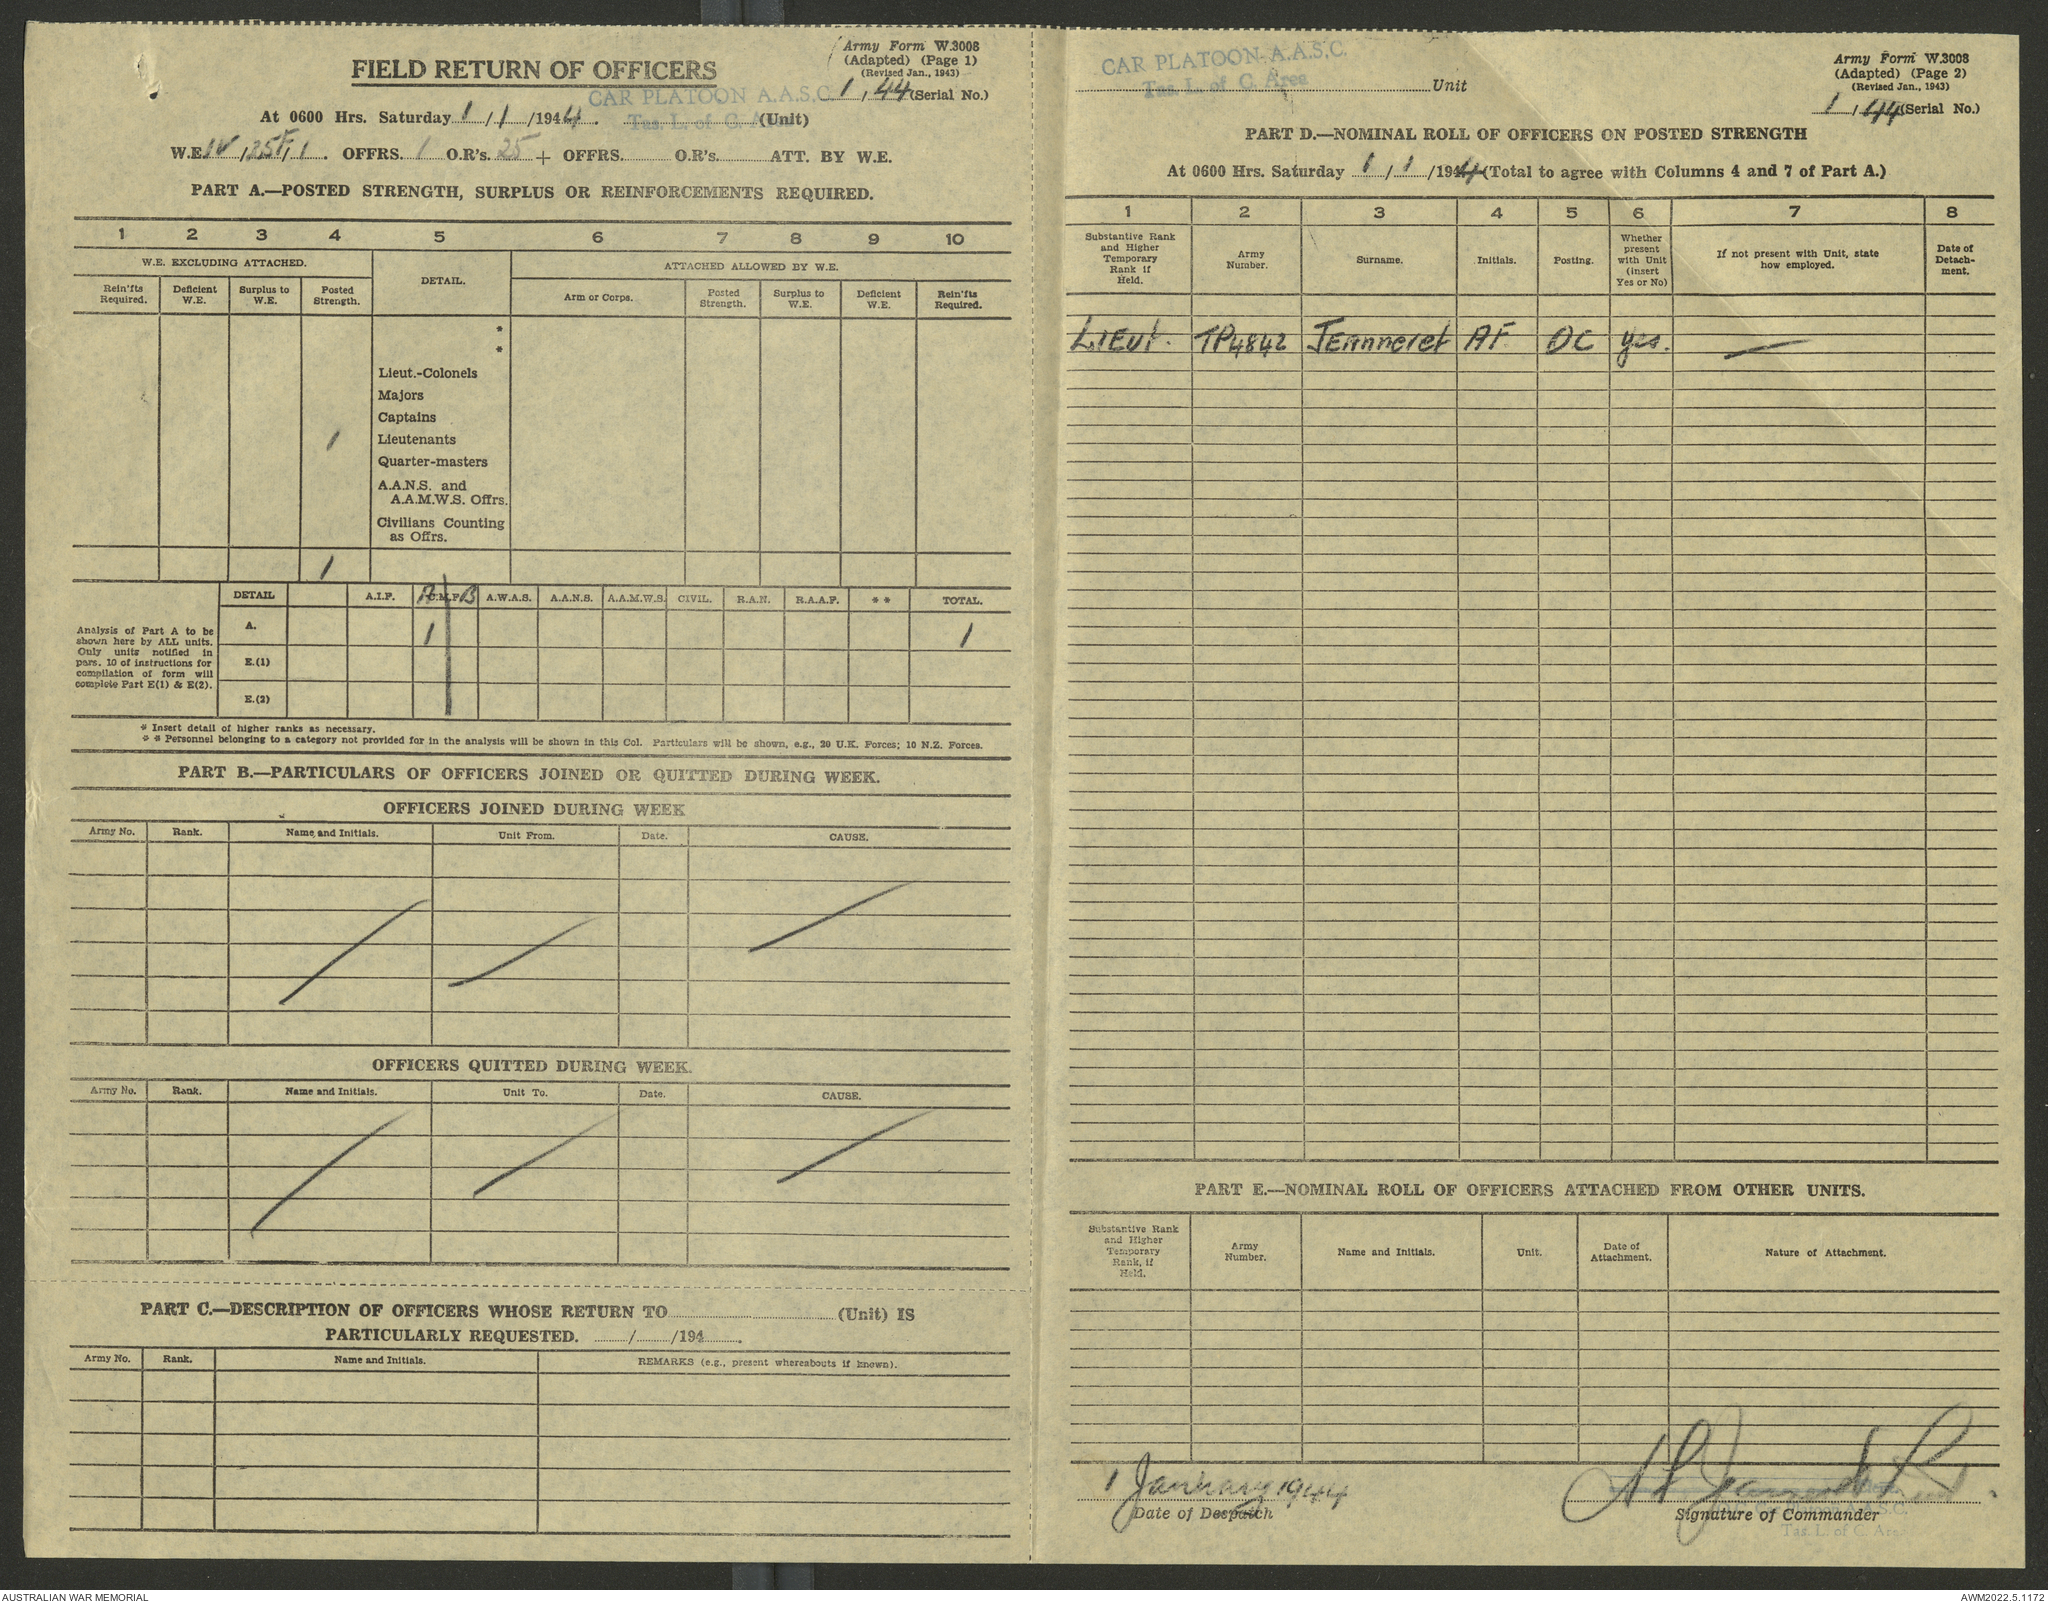 Army Form W.3008
(Adapted) (Page 1)
(Revised Jan., 1943)
FIELD RETURN OF OFFICERS
CAR PLATOON A.A.S.C.
Tas. L. of C. Area
1 / 44 (Serial No.)
At 0600 Hrs. Saturday 1 / 1 / 1944. (Unit)
W.E. IV / 35F / 1. OFFRS. 1 O.R's. 25 + OFFRS. O.R's. ATT. BY W.E.
PART A.—POSTED STRENGTH, SURPLUS OR REINFORCEMENTS REQUIRED.
1 2 3 4 5 6 7 8 9 10
W.E. EXCLUDING ATTACHED. DETAIL. ATTACHED ALLOWED BY W.E.
Rein'fts Required. Deficient W.E. Surplus to W.E. Posted Strength. Arm or Corps. Posted Strength. Surplus to W.E. Deficient W.E. Rein'fts Required.
*
*
Lieut.-Colonels
Majors
Captains
1 Lieutenants
Quarter-masters
A.A.N.S. and
A.A.M.W.S. Offrs.
Civilians Counting
as Offrs.
1
DETAIL A.I.F. A C.M.F. B A.W.A.S. A.A.N.S. A.A.M.W.S. CIVIL. R.A.N. R.A.A.F. ** TOTAL.
A. 1 1
E.(1)
E.(2)
Analysis of Part A to be
shown here by ALL units.
Only units notified in
para. 10 of instructions for
compilation of form will
complete Part E(1) & E(2).
* Insert detail of higher ranks as necessary.
** Personnel belonging to a category not provided for in the analysis will be shown in this Col. Particulars will be shown, e.g., 20 U.K. Forces; 10 N.Z. Forces.
PART B.—PARTICULARS OF OFFICERS JOINED OR QUITTED DURING WEEK.
OFFICERS JOINED DURING WEEK
Army No. Rank. Name and Initials. Unit From. Date. CAUSE.
OFFICERS QUITTED DURING WEEK.
Army No. Rank. Name and Initials. Unit To. Date. CAUSE.
PART C.—DESCRIPTION OF OFFICERS WHOSE RETURN TO (Unit) IS
PARTICULARLY REQUESTED. / /194 .
Army No. Rank. Name and Initials. REMARKS (e.g., present whereabouts if known).
CAR PLATOON A.A.S.C.
Tas. L. of C. Area
Unit
Army Form W.3008
(Adapted) (Page 2)
(Revised Jan., 1943)
1 / 44 (Serial No.)
PART D.—NOMINAL ROLL OF OFFICERS ON POSTED STRENGTH
At 0600 Hrs. Saturday 1 / 1 / 1944 (Total to agree with Columns 4 and 7 of Part A.)
1 2 3 4 5 6 7 8
Substantive Rank and Higher Temporary Rank if Held. Army Number. Surname. Initials. Posting. Whether present with Unit (insert Yes or No) If not present with Unit, state how employed. Date of Detachment.
LIEUt. TP4842 JEanneret AF OC yes. —
PART E.—NOMINAL ROLL OF OFFICERS ATTACHED FROM OTHER UNITS.
Substantive Rank and Higher Temporary Rank, if Held. Army Number. Name and Initials. Unit. Date of Attachment. Nature of Attachment.
1 January 1944
Date of Despatch
A F Jeanneret Lieut.
Signature of Commander
Platoon A.A.S.C.
Tas. L. of C. Area
AUSTRALIAN WAR MEMORIAL
AWM2022.5.1172